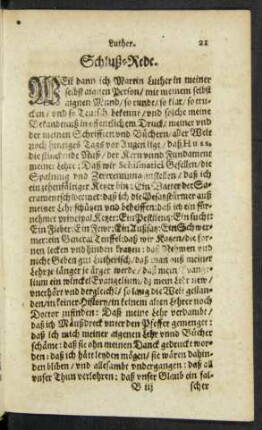 Luther. 21
Schluß-Rede.
WEil dann ich Martin Luther in meiner
selbst aignen Person/ mit meinem selbst
aignen Mund/ so runde/ so klar/ so tru-
cken/ vnd so Teutsch bekenne/ vnd solche meine
Bekandtnuß in offentlichem Druck/ meiner vnd
der meinen Schrifften vnd Büchern/ aller Welt
noch heutiges Tags vor Augen ligt/ daß
die stinckende Nuß/ der Kern vnnd Fundament
meiner Lehre: Daß wir Gesellen/ die
Spaltung vnd Zertrennung anstellen/ daß ich
ein Ketzer bin: Ein der Sa-
cramentschwermer: daß ich die
meiner Lehr schützen vnd behelffen: daß ich ein für-
nehmer principal Ketzer: Ein Pestilentz: Ein sucht:
Ein Fieber: Ein Fewr: Ein Außsatz: Ein Schwer-
mer: ein General Teuffel: daß wir Katzen/ die for-
nen lecken vnd hinden kratzen: daß Nehmen vnd
nicht Geben gut Lutherisch/ daß man auß meiner
Lehr je länger je ärger werde/ daß mein Evange-
lium ein winckel Evangelium/ dz mein Lehr new/
vnerhört vnd vergleich/ so lang die Welt gestan-
den/ in keiner History/ in keinem alten Lehrer noch
Doctor zufinden: Daß meine Lehr verdambt/
daß ich Mäußdreck vnter den Pfeffer gemenget:
daß ich mich meiner aignen Lehr vnnd Bücher
schäme: daß sie ohn meinen Danck gedruckt wor-
den: daß ich hätt leyden mögen/ sie wären dahin-
den bliben/ vnd allesambt vndergangen: daß all
vnser Thun verlohren: daß vnser Glaub ein fal-
B iij scher